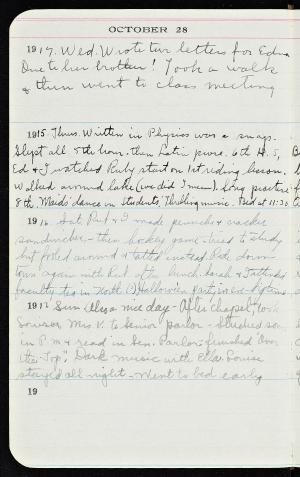 OCTOBER 28
1917. Wed. Wrote two letters for Edna
One to her brother! Took a walk
& then went to class meeting
1915 Thurs. Written in Physics was a snap.
Slept all 5th hour, then Latin prose. 6th H. S.,
Ed & I watched Ruby start on 1st riding lesson.
Walked around lake (we did I mean). Long practice
8th. Maids' dance in Students. Thrilling music. Bed at 11:30
1916 Sat. Rut & I made penuche & cracker
sandwiches - then hockey game - tried to study
but fooled around & "tatted" instead. Rode down
town again with Rut after lunch.
faculty tea in North Hallowe'en Party in
1917 Sun. Also a nice day - After chapel, took
Mrs. V. to Senior parlor - Studied some
in P.M & read in Sen. Parlor - finished "Over
the Top". Dark music with Ella Louise
stayed all night - Went to bed early
19